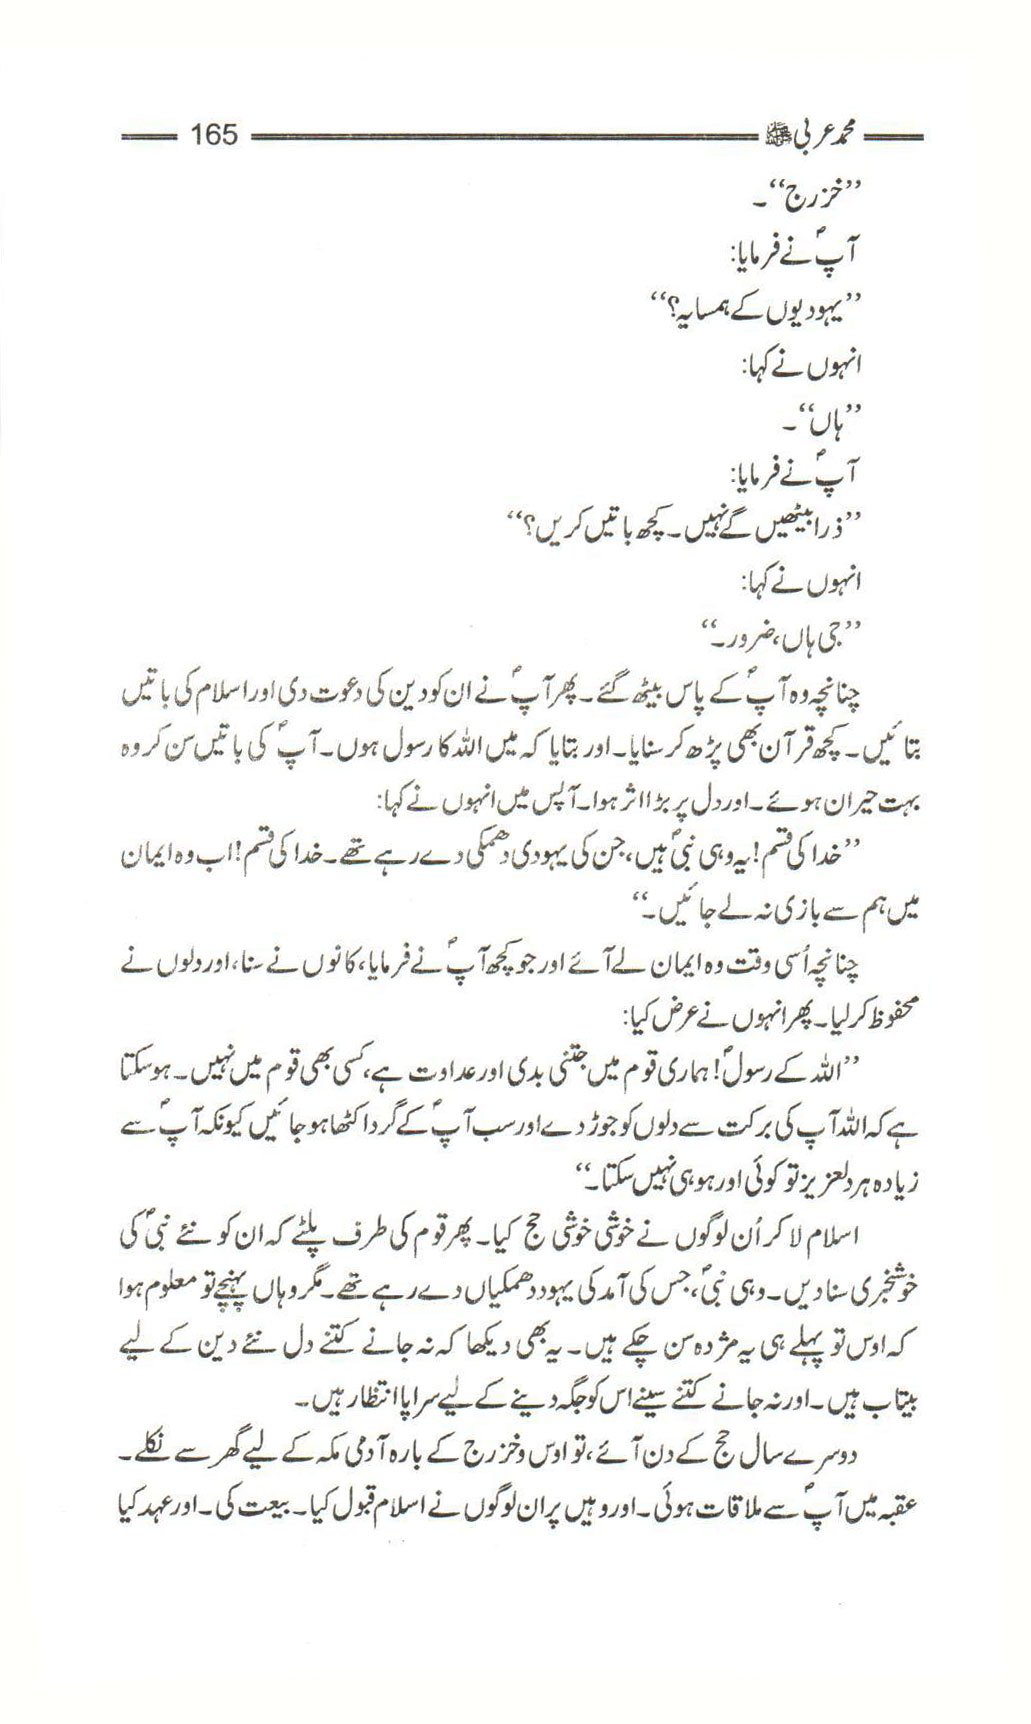 محمد عربی ﷺ 165
’’خزرج‘‘۔
آپؐ نے فرمایا:
’’یہودیوں کے ہمسایہ؟‘‘
انہوں نے کہا:
’’ہاں‘‘۔
آپؐ نے فرمایا:
’’ذرا بیٹھیں گے نہیں۔ کچھ باتیں کریں؟‘‘
انہوں نے کہا:
’’جی ہاں، ضرور۔‘‘
چنانچہ وہ آپؐ کے پاس بیٹھ گئے۔ پھر آپؐ نے ان کو دین کی دعوت دی اور اسلام کی باتیں
بتائیں۔ کچھ قرآن بھی پڑھ کر سنایا۔ اور بتایا کہ میں اللہ کا رسول ہوں۔ آپؐ کی باتیں سن کر وہ
بہت حیران ہوئے۔ اور دل پر بڑا اثر ہوا۔ آپس میں انہوں نے کہا:
’’خدا کی قسم! یہ وہی نبیؐ ہیں، جن کی یہودی دھمکی دے رہے تھے۔ خدا کی قسم! اب وہ ایمان
میں ہم سے بازی نہ لے جائیں۔‘‘
چنانچہ اُسی وقت وہ ایمان لے آئے اور جو کچھ آپؐ نے فرمایا، کانوں نے سنا، اور دلوں نے
محفوظ کر لیا۔ پھر انہوں نے عرض کیا:
’’اللہ کے رسولؐ! ہماری قوم میں جتنی بدی اور عداوت ہے، کسی بھی قوم میں نہیں۔ ہو سکتا
ہے کہ اللہ آپ کی برکت سے دلوں کو جوڑ دے اور سب آپؐ کے گرد اکٹھا ہو جائیں کیونکہ آپؐ سے
زیادہ ہر دلعزیز تو کوئی اور ہو ہی نہیں سکتا۔‘‘
اسلام لا کر اُن لوگوں نے خوشی خوشی حج کیا۔ پھر قوم کی طرف پلٹے کہ ان کو نئے نبیؐ کی
خوشخبری سنا دیں۔ وہی نبیؐ، جس کی آمد کی یہود دھمکیاں دے رہے تھے۔ مگر وہاں پہنچے تو معلوم ہوا
کہ اوس تو پہلے ہی یہ مژدہ سن چکے ہیں۔ یہ بھی دیکھا کہ نہ جانے کتنے دل نئے دین کے لیے
بیتاب ہیں۔ اور نہ جانے کتنے سینے اس کو جگہ دینے کے لیے سراپا انتظار ہیں۔
دوسرے سال حج کے دن آئے، تو اوس و خزرج کے بارہ آدمی مکہ کے لیے گھر سے نکلے۔
عقبہ میں آپؐ سے ملاقات ہوئی۔ اور وہیں پر ان لوگوں نے اسلام قبول کیا۔ بیعت کی۔ اور عہد کیا